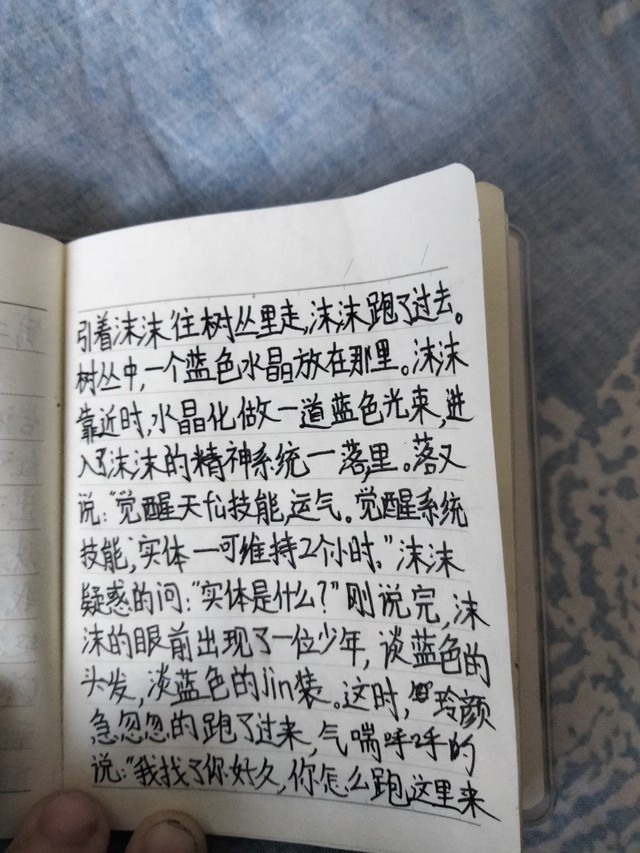 引着沫沫往树丛里走,沫沫跑了过去。
树丛中,一个蓝色水晶放在那里。沫沫
靠近时,水晶化做一道蓝色光束,进
入了沫沫的精神系统一落里。落又
说:"觉醒天仙技能,运气。觉醒系统
技能,实体一可维持2个小时."沫沫
疑惑的问:"实体是什么?"刚说完,沫
沫的眼前出现了一位少年,淡蓝色的
头发,淡蓝色的Jin装。这时,玲颜
急忽忽的跑了过来,气喘呼呼的
说:"我找了你好久,你怎么跑这里来